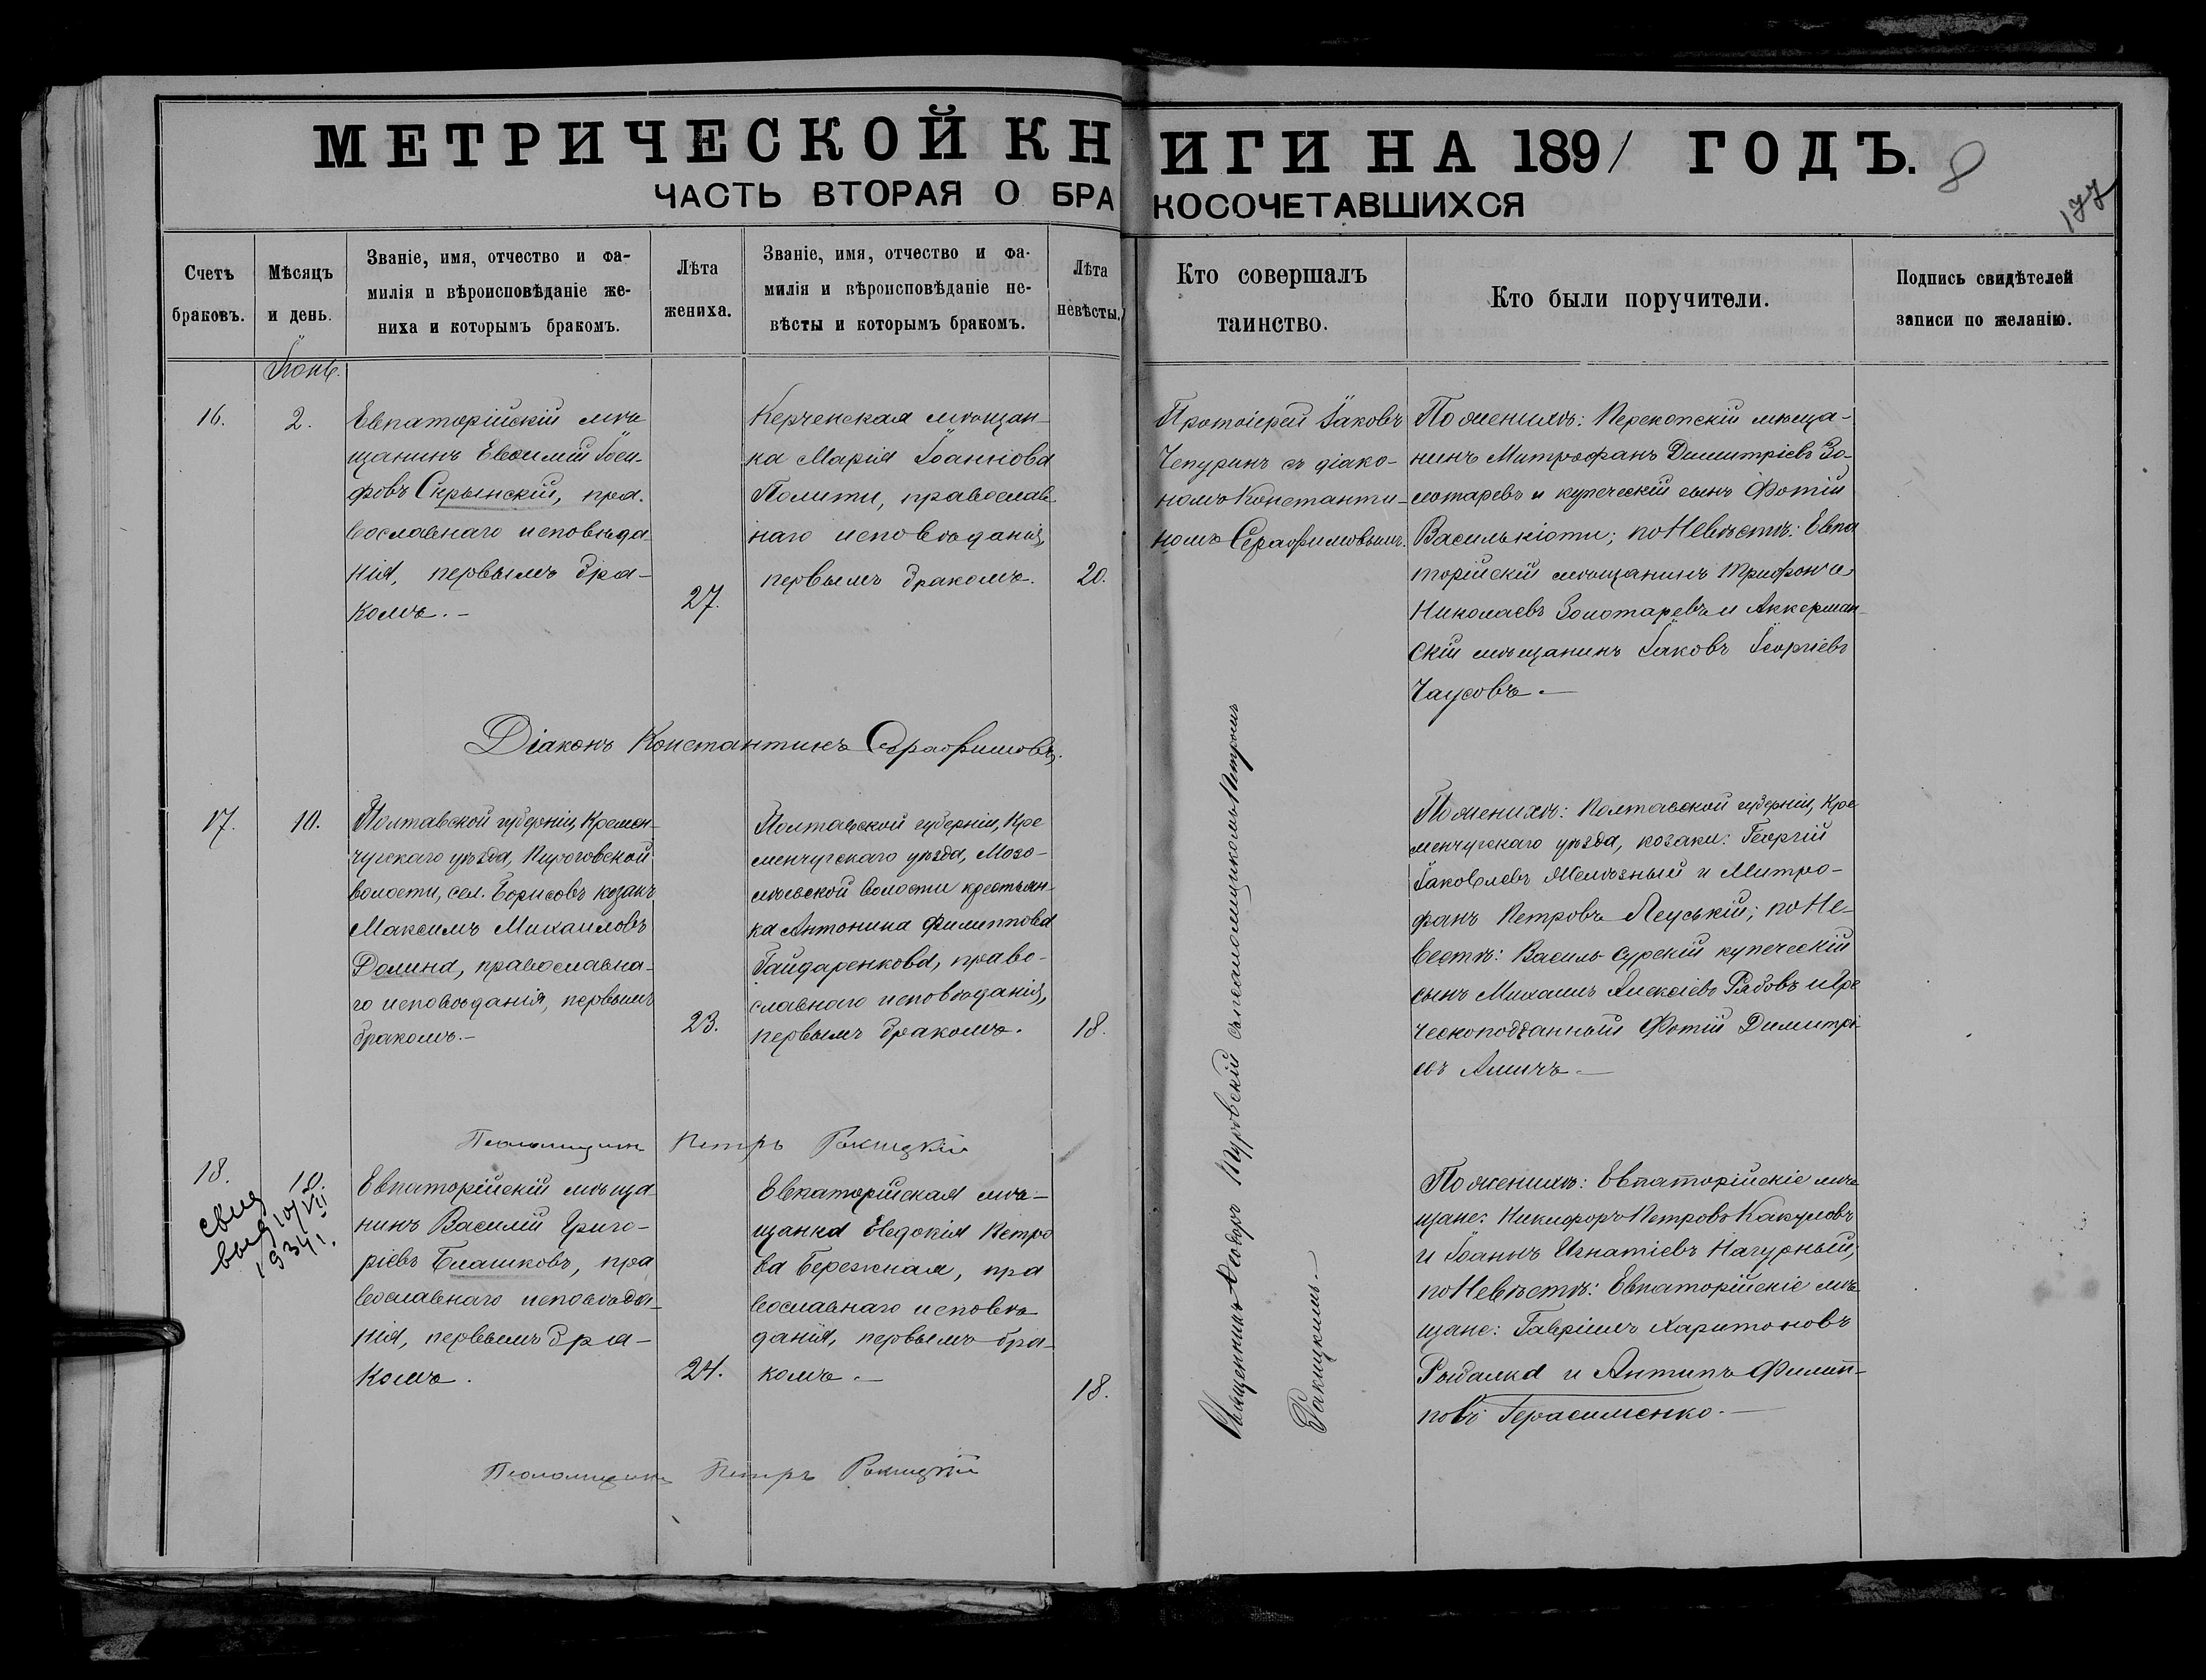 МЕТРИЧЕСКОЙ КНИГИ НА 1891 ГОДЪ.
8
177
ЧАСТЬ ВТОРАЯ О БРАКОСОЧЕТАВШИХСЯ
Счетъ
браковъ.
Мѣсяцъ
и день.
Званіе, имя, отчество и фа-
милія и вѣроисповѣданіе же-
ниха и которымъ бракомъ.
Лѣта
жениха.
Званіе, имя, отчество и фа-
милія и вѣроисповѣданіе не-
вѣсты и которымъ бракомъ.
Лѣта
невѣсты.
Кто совершалъ
таинство.
Кто были поручители.
Подпись свидѣтелей
записи по желанію.
Іюнь.
16.
2.
Евпаторійскій мѣ
щанинъ Евѳимій Іоси-
фовъ Скрынскій, пра-
вославнаго исповѣда
нія, первымъ бра-
комъ.-
27.
Керченская мѣщан-
ка Марія Іоаннова
Полити, православ
наго исповѣданія,
первымъ бракомъ.
20.
Протоіерей Іаковъ
Чепуринъ съ діако-
номъ Константи-
номъ Серафимовымъ.
По женихѣ: Перекопскій мѣща-
нинъ Митрофанъ Димитріевъ Зо-
лотаревъ и купеческій сынъ Фотій
Василькіоти; по невѣстѣ: Евпа
торійскій мѣщанинъ Трифонъ
Николаевъ Золотаревъ и Аккерман-
скій мѣщанинъ Іаковъ Георгіевъ
Чаусовъ.-
Діаконъ Константинъ Серафимовъ.
17.
10.
Полтавской губерніи, Кремен-
чугскаго уѣзда, Пироговской
волости, сел. Борисовъ козакъ
Максимъ Михаиловъ
Долина, православна-
го исповѣданія, первымъ
бракомъ.-
23.
Полтавской губерніи, Кре
менчугскаго уѣзда,
волости крестьян-
ка Антонина Филиппова
Гайдаренкова, право-
славнаго исповѣданія,
первымъ бракомъ.
18.
Священникъ Ѳеодоръ Туровскій съ псаломщикомъ Петромъ
Ракицкимъ.-
По женихѣ: Полтавской губерніи, Кре
менчугскаго уѣзда, козаки: Георгій
Іаковлевъ и Митро-
фанъ Петровъ по не-
вестѣ: Василь-Сурскій купеческій
сынъ Михаилъ Алексіевъ Рябовъ и Гре
ческоподданный Фотій Димитрі
евъ
Псаломщикъ Петръ Ракицкій
18.
10.
свид
выд 10/VII
1934 г.
Евпаторійскій мѣща
нинъ Василій Григо-
ріевъ Блашковъ, пра
вославнаго исповѣда-
нія, первымъ бра-
комъ.
24.
Евпаторійская мѣ-
щанка Евдокія Петро
ва Бережная, пра
вославнаго исповѣ
данія, первымъ бра-
комъ.-
18.
По женихѣ: Евпаторійскіе мѣ
щане: Никифоръ Петровъ Какуловъ
и Іоаннъ Игнатіевъ Нагурный;
по невѣстѣ: Евпаторійскіе мѣ
щане: Гавріилъ Харитоновъ
Рыбалка и Антипъ Филип-
повъ Герасименко.-
Псаломщикъ Петръ Ракицкій